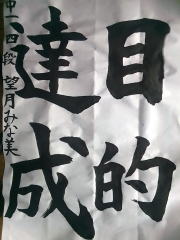 目的
達成
中一 四段 望月みな美